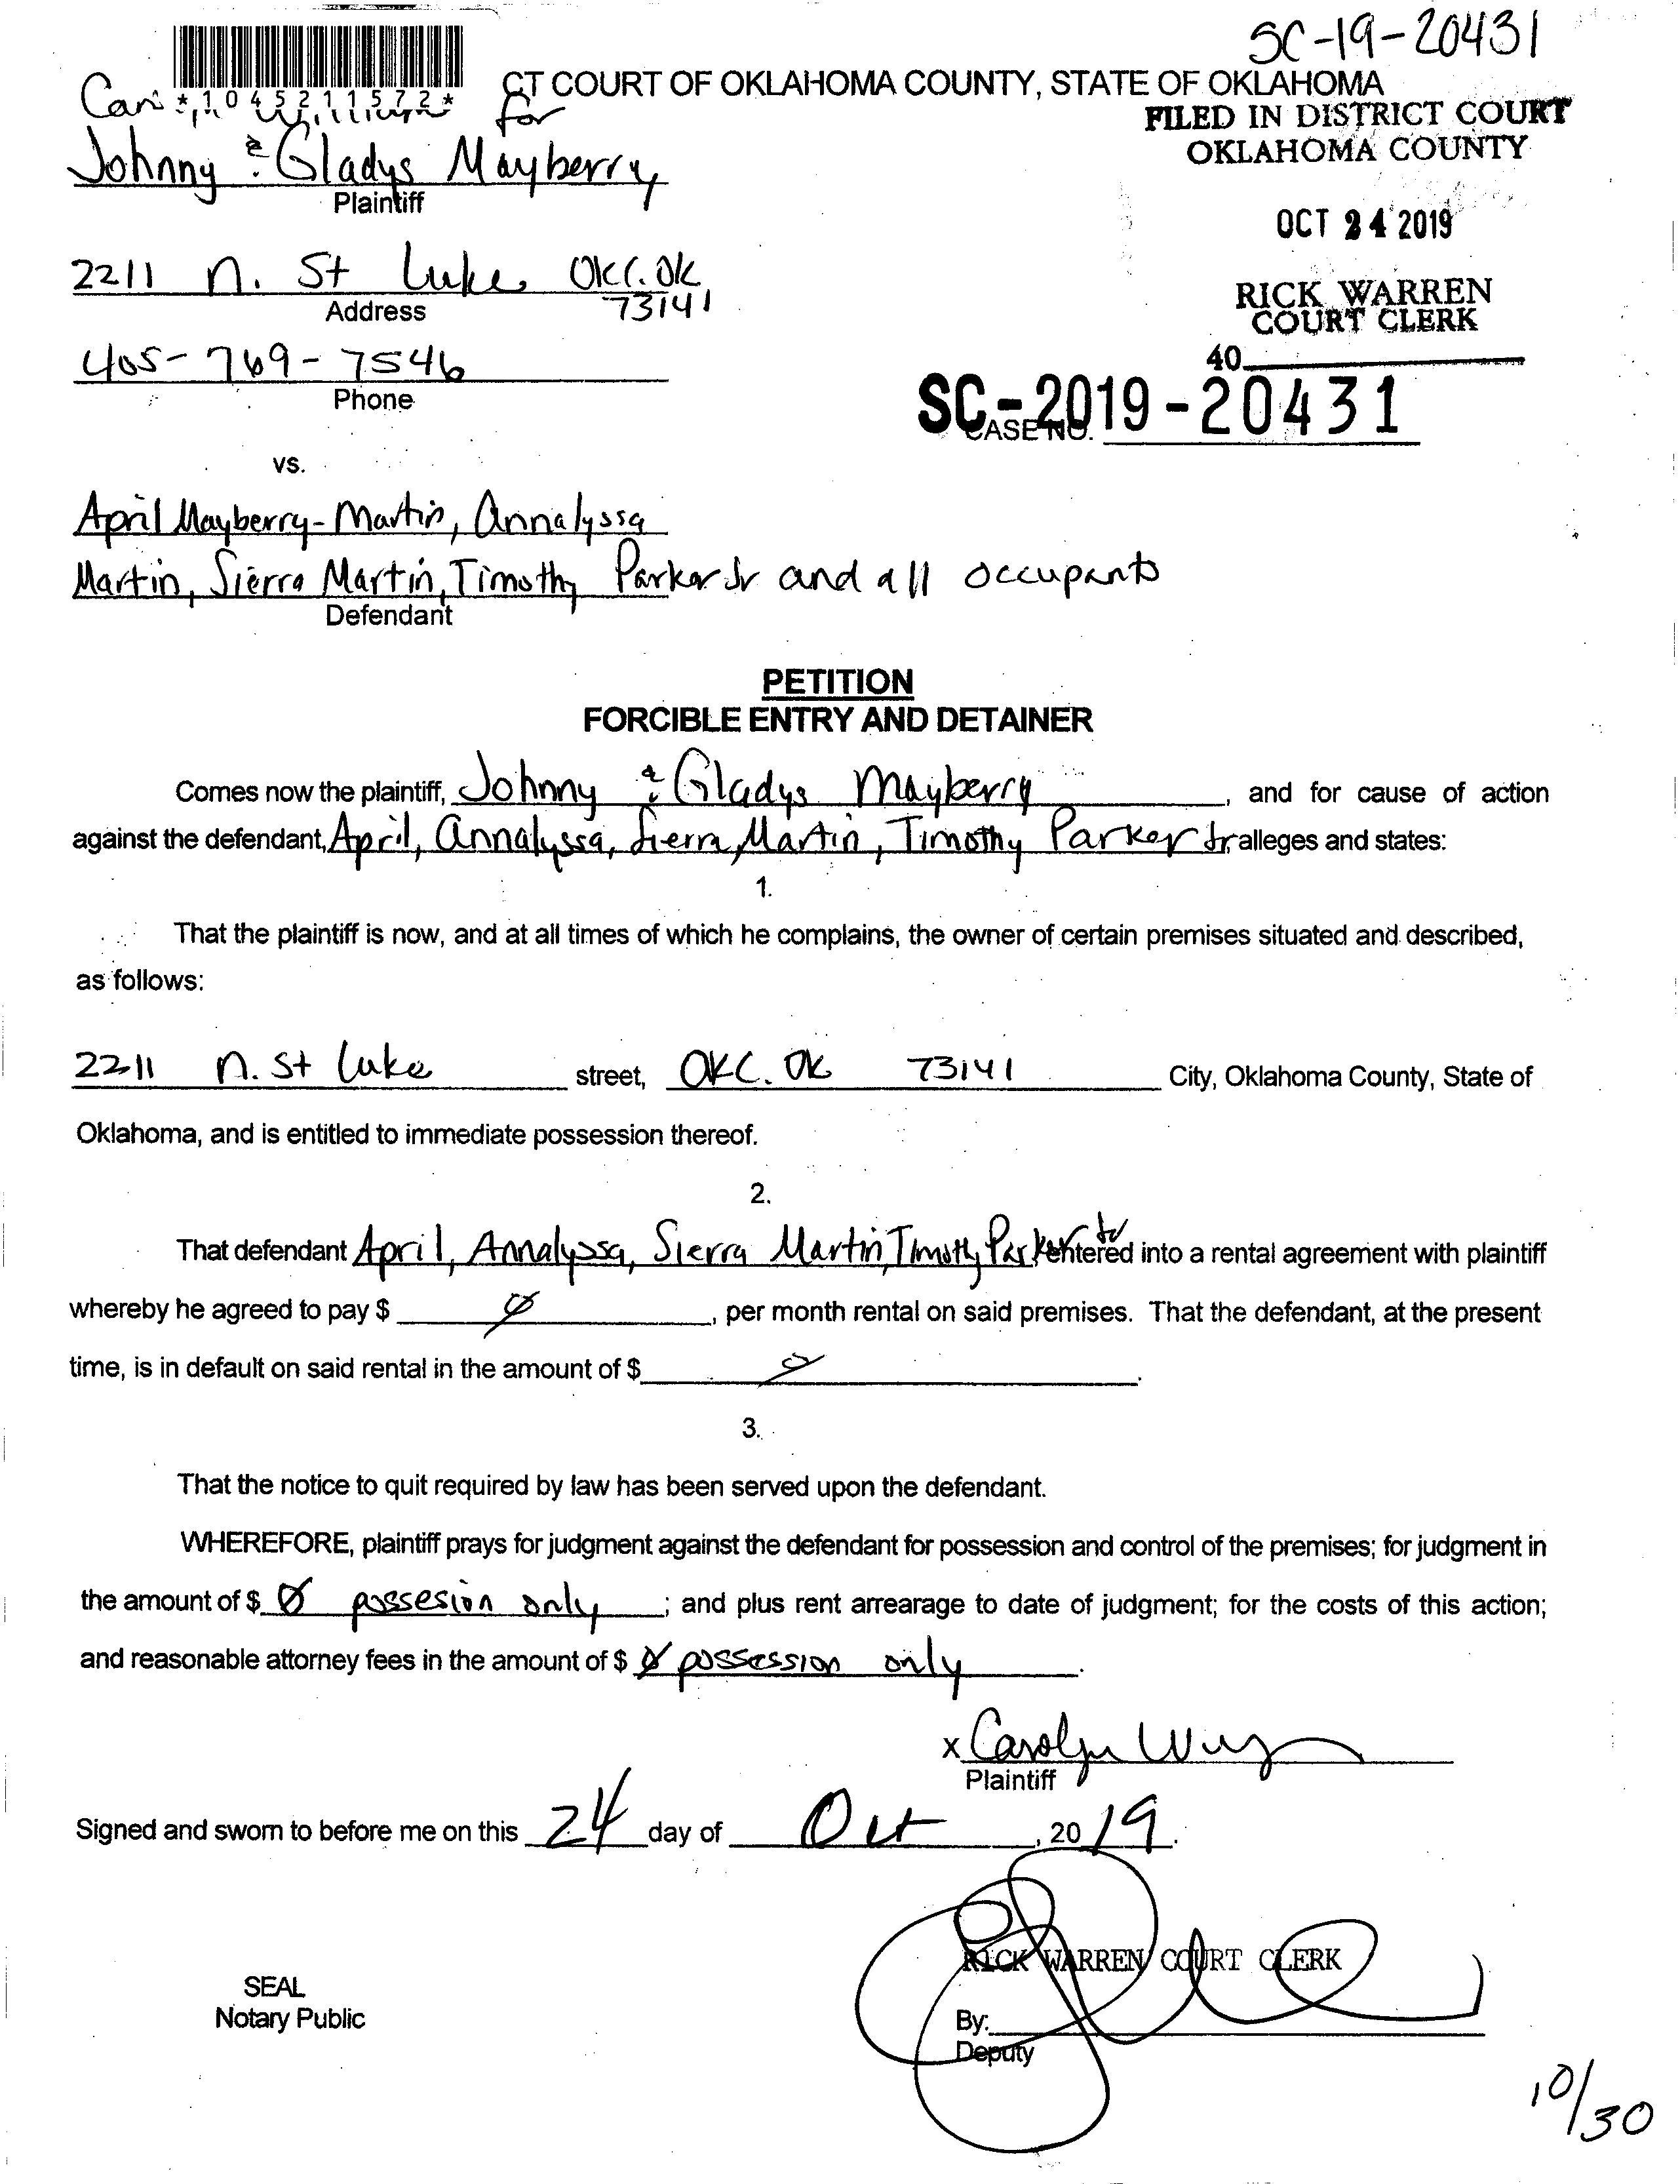 SC-19-20431
CT COURT OF OKLAHOMA COUNTY, STATE OF OKLAHOMA
*1045211572*
for
FILED IN DISTRICT COURT
OKLAHOMA COUNTY
Johnny & Gladys Mayberry
Plaintiff
OCT 24 2019
2211 N. St Luke OKC. OK
73141
Address
RICK WARREN
COURT CLERK
405-769-7546
Phone
40
SC-2019-20431
CASE NO.
vs.
April Mayberry-Martin, Annalyssa
Martin, Sierra Martin, Timothy Parker Jr and all occupants
Defendant
PETITION
FORCIBLE ENTRY AND DETAINER
Comes now the plaintiff, Johnny & Gladys Mayberry, and for cause of action
against the defendant, April, Annalyssa, Sierra, Martin, Timothy Parker Jr, alleges and states:
1.
That the plaintiff is now, and at all times of which he complains, the owner of certain premises situated and described,
as follows:
2211 N. St Luke street, OKC. OK 73141 City, Oklahoma County, State of
Oklahoma, and is entitled to immediate possession thereof.
2.
That defendant April, Annalyssa, Sierra Martin, Timothy Parker Jr entered into a rental agreement with plaintiff
whereby he agreed to pay $ Ø, per month rental on said premises. That the defendant, at the present
time, is in default on said rental in the amount of $ Ø.
3.
That the notice to quit required by law has been served upon the defendant.
WHEREFORE, plaintiff prays for judgment against the defendant for possession and control of the premises; for judgment in
the amount of $ Ø possesion only; and plus rent arrearage to date of judgment; for the costs of this action;
and reasonable attorney fees in the amount of $ Ø possession only.
x Carolyn
Plaintiff
Signed and sworn to before me on this 24 day of Oct, 2019.
RICK WARREN COURT CLERK
SEAL
Notary Public
By:
Deputy
10/30